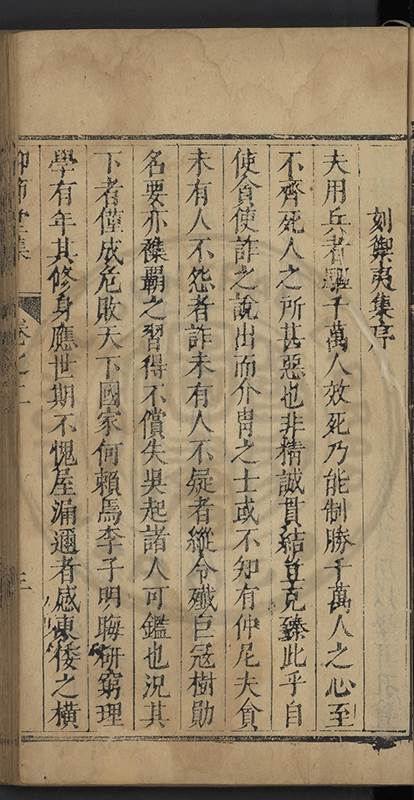 刻禦夷集序
夫用兵者驅千萬人效死乃能制勝千萬人之心至
不齊死人之所甚惡也非精誠貫結豈克臻此乎自
使貪使詐之說出而介冑之士或不知有仲尼夫貪
未有人不怨者詐未有人不疑者縱令殲巨寇樹勛
名要亦襍覇之習得不償失吳起諸人可鑑也況其
下者僅成危敗天下國家何賴焉李子明晦研窮理
學有年其修身應世期不愧屋漏邇者感東倭之橫
卷之二
三